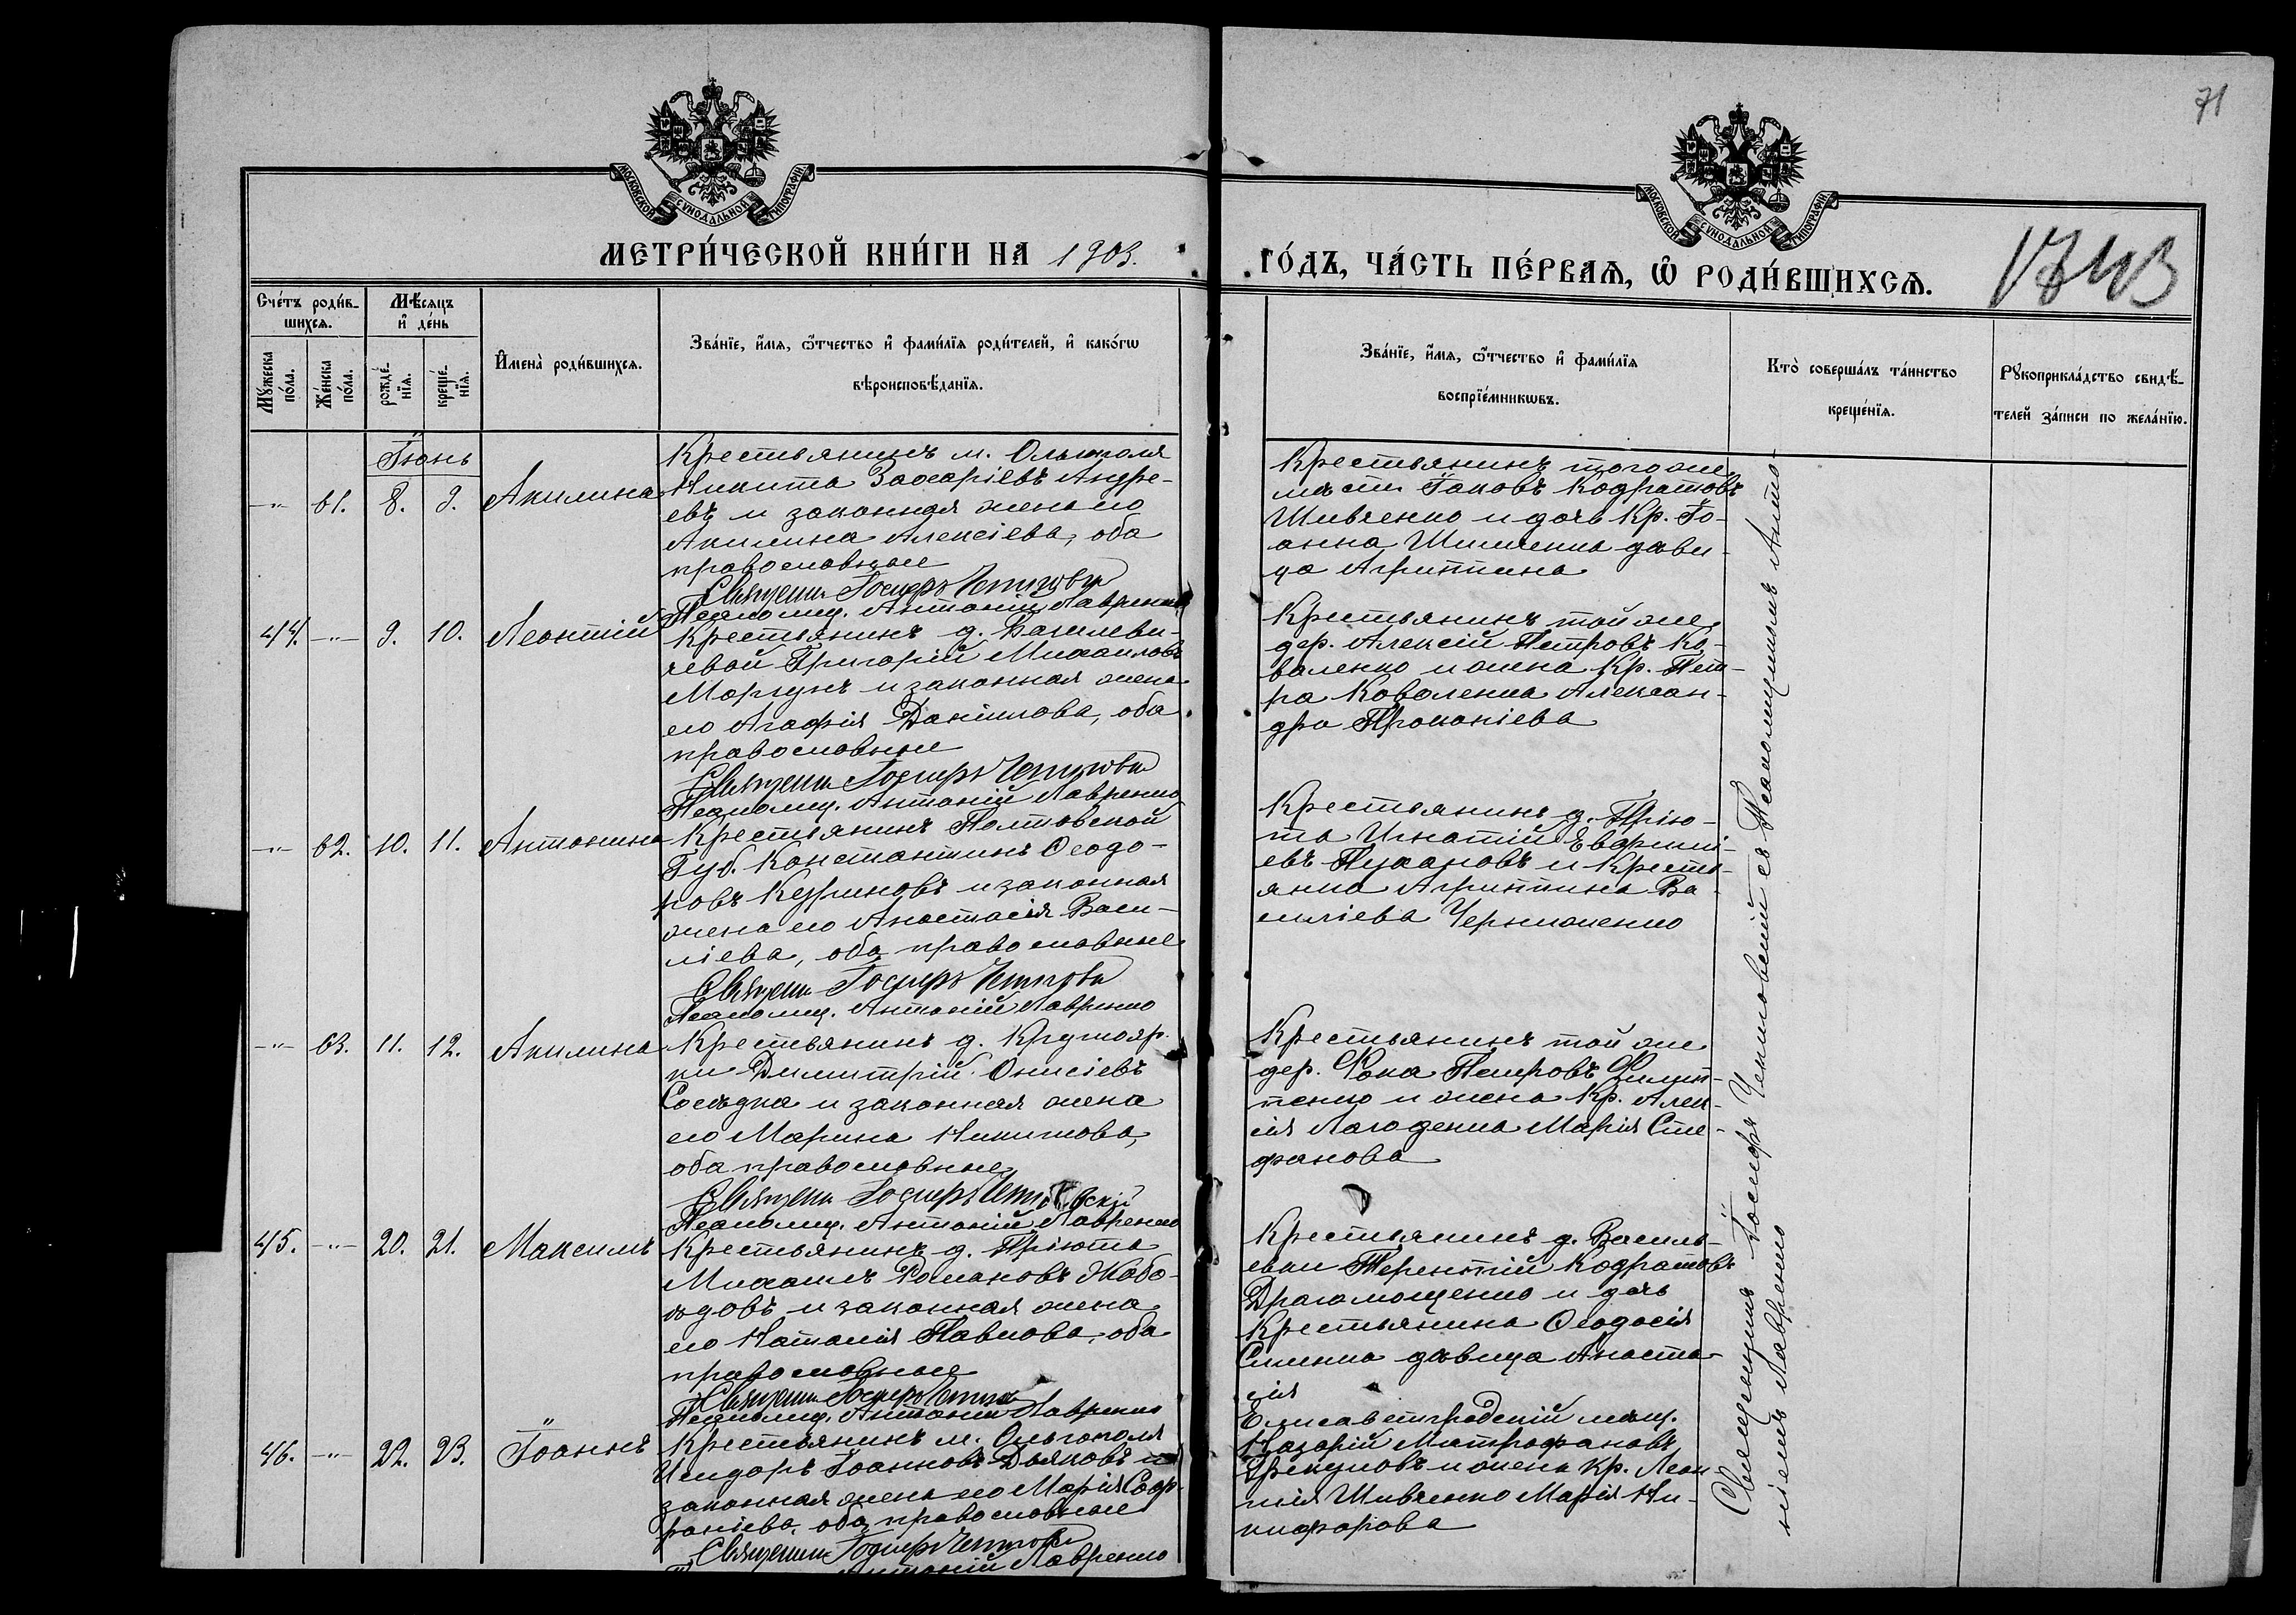 71
МОСКОВСКОЙ СѴНОДАЛЬНОЙ ТИПОГРАФІИ.
МОСКОВСКОЙ СѴНОДАЛЬНОЙ ТИПОГРАФІИ.
МЕТРИ́ЧЕСКОЙ КНИ́ГИ НА 1903.
ГО́ДЪ, ЧА́СТЬ ПЕ́РВАѦ, Ѡ҆ РОДИ́ВШИХСѦ.
1743
Сче́тъ роди́в-
шихсѧ.
Мѣ́сѧцъ
и҆ де́нь
Мꙋ́жеска
по́ла.
Же́нска
по́ла.
рожде́-
нїѧ.
креще́-
нїѧ.
И҆мена̀ роди́вшихсѧ.
Зва́нїе, и҆́мѧ, ѻ҆́тчество и҆ фами́лїѧ роди́телей, и҆ како́гѡ
вѣроисповѣ́данїѧ.
Зва́нїе, и҆́мѧ, ѻ҆́тчество и҆ фами́лїѧ
воспрїе́мникѡвъ.
Кто̀ соверша́лъ та́инство
креще́нїѧ.
Рꙋкоприкла́дство свидѣ́-
телей за́писи по жела́нїю.
Іюнь
-"- 61. 8. 9. Акилина
Крестьянинъ м. Ольгополя
Никита Захаріевъ Андре-
евъ и законная жена его
Акилина Алексіева, оба
православные
Священн. Іосифъ
Псаломщ. Антоній Лавренко
Крестьянинъ того же
мѣст. Іаковъ Кодратовъ
Шивченко и дочь Кр. Іо-
анна дѣви-
ца Агриппина
44. -"- 9. 10. Леонтій
Крестьянинъ д. Василеви-
чевой Григорій Михаиловъ
Моргунъ и законная жена
его Агафія Даніилова, оба
православные
Священн. Іосифъ
Псаломщ. Антоній Лавренко
Крестьянинъ той же
дер. Алексій Петровъ Ко-
валенко и жена Кр. Пет-
ра Коваленка Алексан-
дра Прокопіева
-"- 62. 10. 11. Антонина
Крестьянинъ Полтовской
Губ. Константинъ Ѳеодо-
ровъ и законная
жена его Анастасія Васи-
ліева, оба православные
Священн. Іосифъ
Псаломщ. Антоній Лавренко
Крестьянинъ д. Прію-
та Игнатій Евфимі-
евъ и Кресть-
янка Агриппина Ва-
силіева
-"- 63. 11. 12. Акилина
Крестьянинъ д. Крутояр-
ки Димитрій Онисіевъ
Сосѣдка и законная жена
его Марина Никитова,
оба православные
Священн. Іосифъ
Псаломщ. Антоній Лавренко
Крестьянинъ той же
дер. Фока Петровъ Филип-
пенко и жена Кр. Алек-
сія Лагоденка Марія Сте-
фанова
45. -"- 20. 21. Максимъ
Крестьянинъ д. Пріюта
Михаилъ Романовъ Жабо-
ѣдовъ и законная жена
его Наталія Павлова, оба
православные
Священн. Іосифъ
Псаломщ. Антоній Лавренко
Крестьянинъ д. Василь-
евки Терентій Кодратовъ
и дочь
Крестьянина Ѳеодосія
дѣвица Анаста-
сія
46. -"- 22. 23. Іоаннъ
Крестьянинъ м. Ольгополя
Исидоръ Іоанновъ Дьяковъ и
законная жена его Марія Соф-
роніева, оба православные
Священн. Іосифъ
Антоній Лавренко
Елисаветградскій мѣщ.
Назарій Митрофановъ
и жена Кр. Леон-
тія Шивченко Марія Ни-
кифорова
Священникъ Іосифъ съ Псаломщикомъ Анто-
ніемъ Лавренко